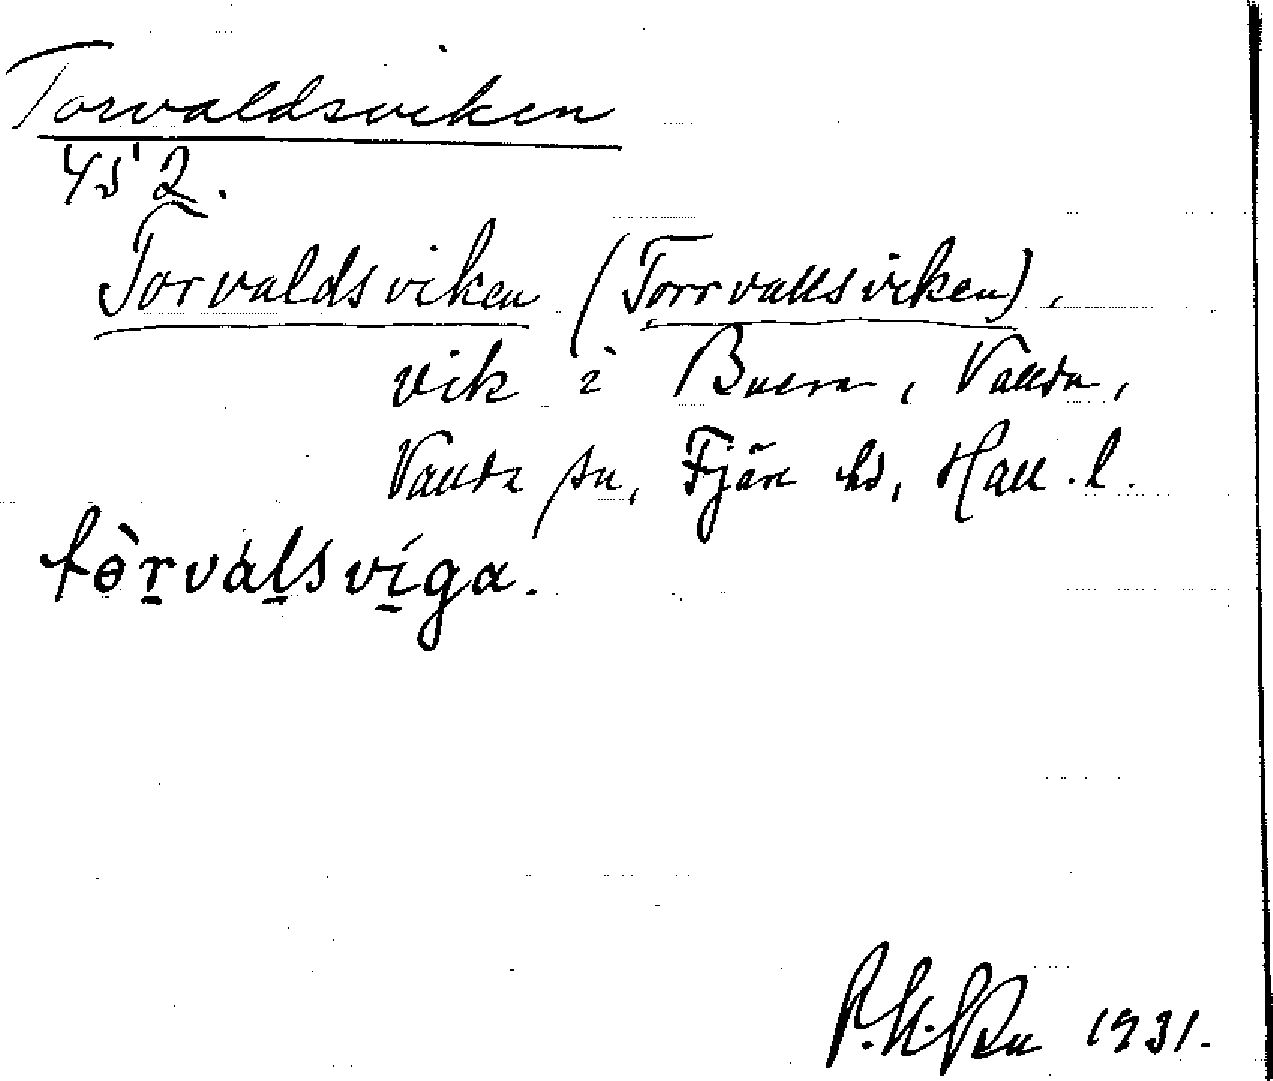 Torvaldsviken
45' 2.
Torvaldsviken (Torrvallsviken),
vik i Buera, Vallda,
Vallda sn, Fjäre hd, Hall. l.
tòrválsvíga.
1931.